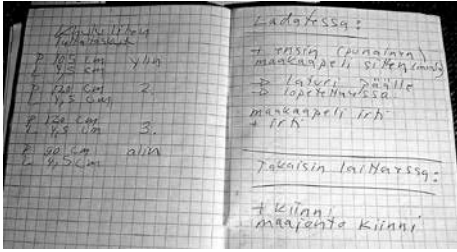 P 105 cm ylin
L 4,5 cm
P 120 cm 2.
L 4,5 cm
P 120 cm 3.
L 4,5 cm
P 90 cm alin
L 4,5 cm
Ladatessa:
+ ensin (punainen)
maakaapeli sitten (musta)
→ laturi päälle
→ lopetettaessa
maakaapeli irti
+ irti
Takaisin laittaessa:
+ kiinni
maajohto kiinni